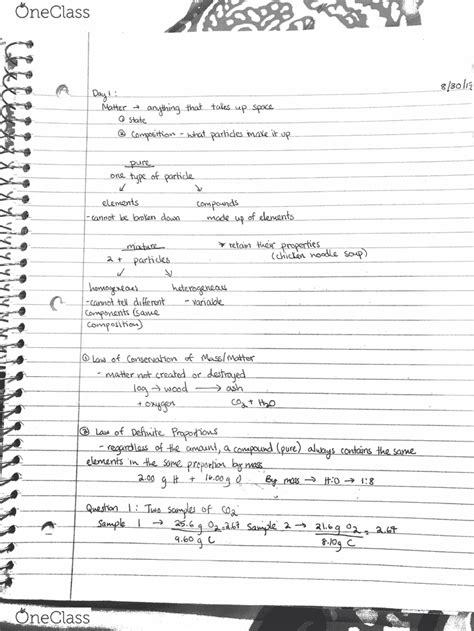 OneClass
8/30/1
Day 1:
Matter → anything that takes up space
① State
② Composition - what particles make it up
pure
one type of particle
elements compounds
- cannot be broken down made up of elements
mixture → retain their properties
2 + particles (chicken noodle soup)
homogeneous heterogeneous
- cannot tell different - variable
components (same
composition)
① Law of Conservation of Mass/Matter
- matter not created or destroyed
log → wood → ash
+ oxygen CO2 + H2O
② Law of Definite Proportions
- regardless of the amount, a compound (pure) always contains the same
elements in the same proportion by mass
2.00 g H + 16.00 g O By mass → H:O → 1:8
Question 1: Two samples of CO2
Sample 1 → 25.6 g O2 = 2.67 Sample 2 → 21.6 g O2 = 2.67
9.60 g C 8.10 g C
OneClass